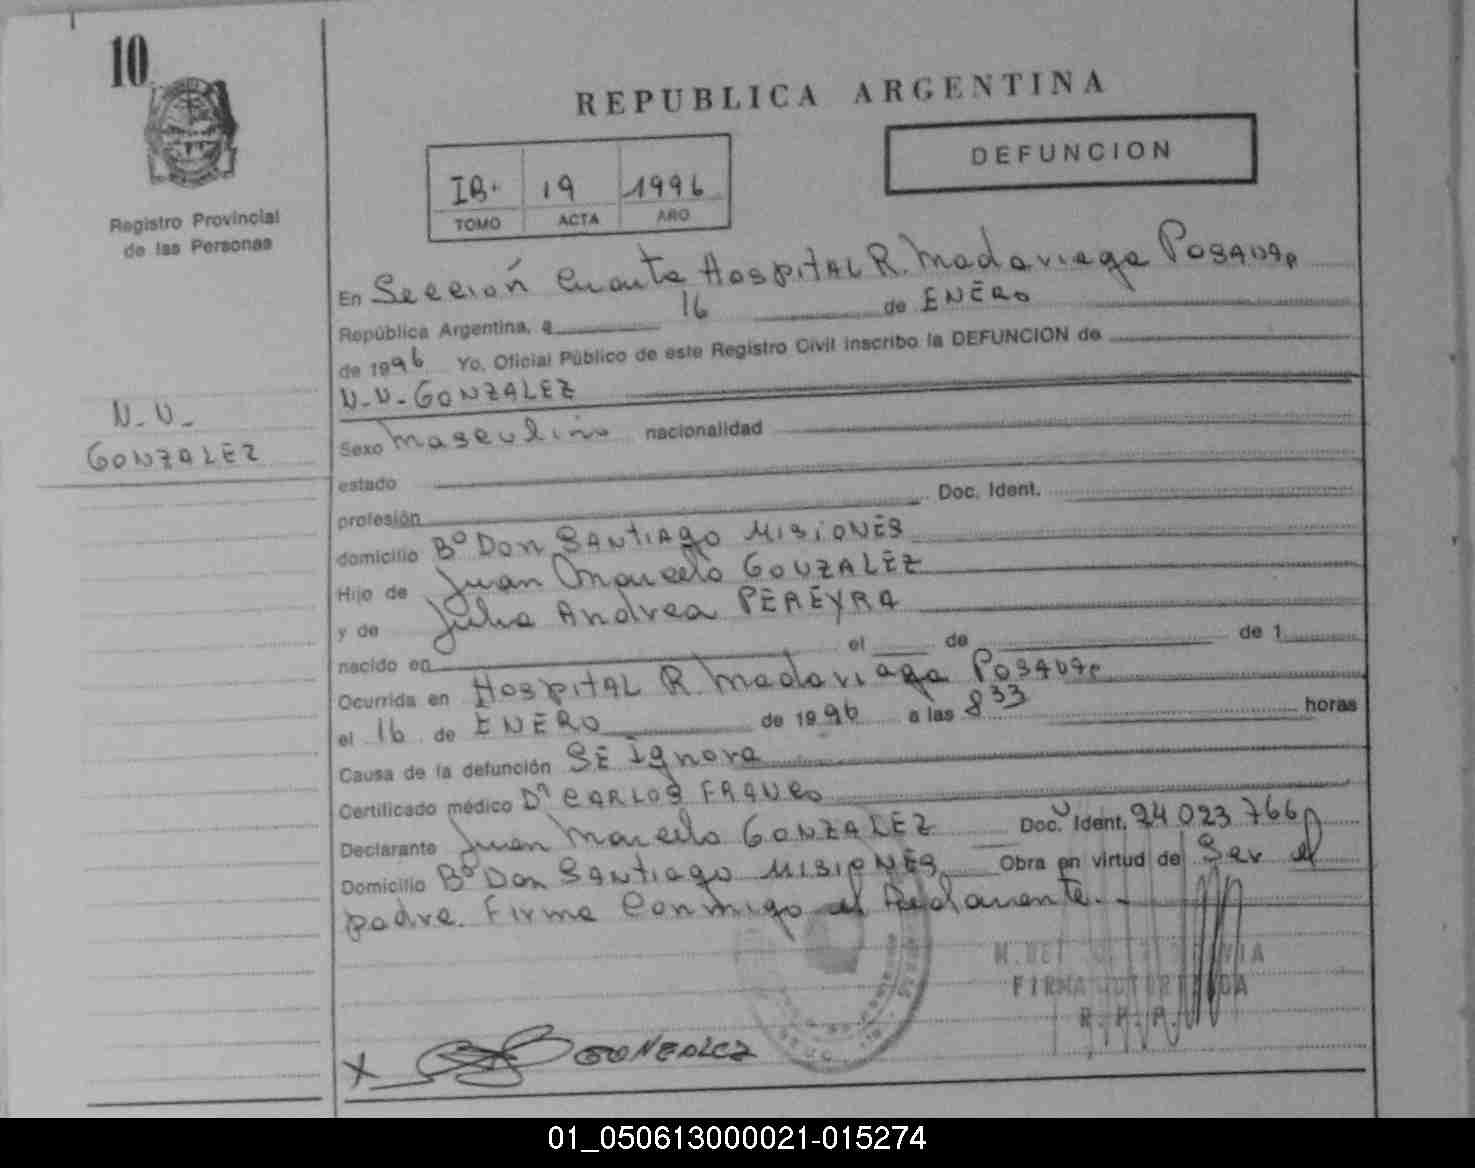 10
Registro Provincial
de las Personas
REPUBLICA ARGENTINA
DEFUNCION
IB. 19 1996
TOMO ACTA AÑO
En Sección Cuarta Hospital R. Madariaga Posadas
República Argentina, a 16 de ENERO
de 1996 Yo, Oficial Público de este Registro Civil inscribo la DEFUNCION de
N-N- GONZALEZ
N-N-
GONZALEZ
Sexo Masculino nacionalidad
estado
profesión Doc. Ident.
domicilio Bº Don SANTIAGO MISIONES
Hijo de Juan Marcelo GONZALEZ
y de Julia Andrea PEREYRA
nacido en el de de 1
Ocurrida en HOSPITAL R. Madariaga Posadas
el 16 de ENERO de 1996 a las 8 33 horas
Causa de la defunción SE Ignora
Certificado médico Dr CARLOS
Declarante Juan Marcelo GONZALEZ Doc. Ident. 24 023 766
Domicilio Bº Don SANTIAGO MISIONES Obra en virtud de Ser el
padre. Firma Conmigo el Declarante.-
FIRMA AUTORIZADA
R. P. P.
X GONZALEZ
01_050613000021-015274